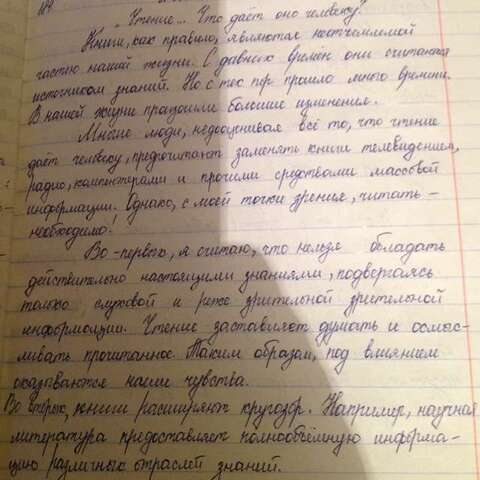 №4
„Чтение... Что даёт оно человеку?"
Книги, как правило, являются неотъемлемой
частью нашей жизни. С давних времён они считаются
источником знаний. Но с тех пор прошло много времени.
В нашей жизни произошли большие изменения.
Многие люди, недооценивая всё то, что чтение
даёт человеку, предпочитают заменять книги телевидением,
радио, компьютерами и прочими средствами массовой
информации. Однако, с моей точки зрения, читать –
необходимо!
Во-первого, я считаю, что нельзя обладать
действительно настоящими знаниями, подвергаясь
только слуховой и реже зрительной зрительной
информации. Чтение заставляет думать и осмыс-
ливать прочитанное. Таким образом, под влиянием
оказываются наши чувства.
Во вторых, книги расширяют кругозор. Например, научная
литература предоставляет полнообъёмную информа-
цию различных отраслей знаний.